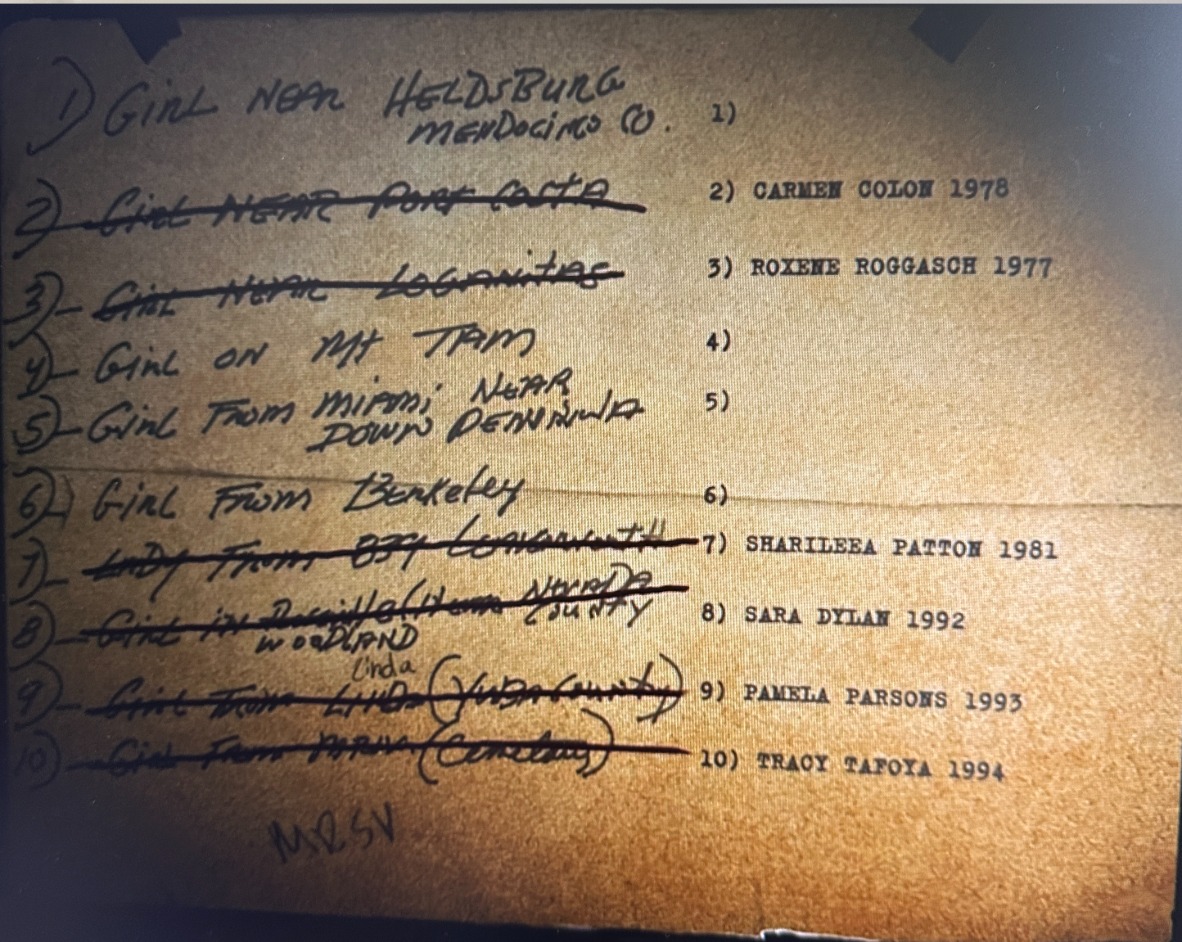 1) GIRL NEAR HELDSBURG
MENDOCINO CO. 1)
2) GIRL NEAR PORT COSTA 2) CARMEN COLON 1978
3) GIRL NEAR LOGANITAS 3) ROXENE ROGGASCH 1977
4) GIRL ON MT TAM 4)
5) GIRL FROM MIAMI NEAR 5)
DOWN PENNINULA
6) GIRL FROM BERKELEY 6)
7) LADY FROM 839 LEAVENWORTH 7) SHARILEEA PATTON 1981
8) GIRL IN NEVADA 8) SARA DYLAN 1992
COUNTY
WOODLAND
Linda
9) GIRL FROM LINDA (YUBA COUNTY) 9) PAMELA PARSONS 1993
10) GIRL FROM (CEMETARY) 10) TRACY TAFOYA 1994
MRSV